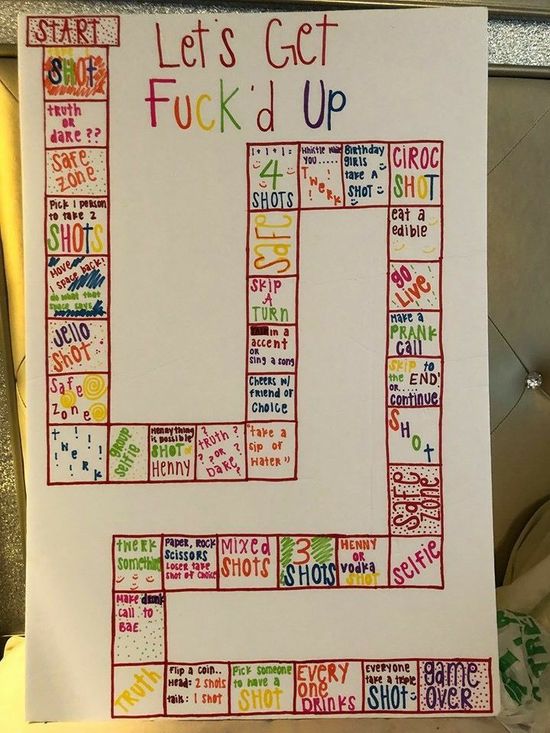 START
Let's Get
Fuck'd Up
SHOt
tRUth
OR
daRe ??
Safe
zone
Pick 1 person
to take 2
SHOtS
Move
1 space back!
do what that
space says
Jello
Shot
Safe
Zone
twerk
group
selfie
Hennything
is possible
SHOT OF
Henny
?
tRUth?
? OR
DaRe?
"take a
sip of
Water"
Cheers w/
friend of
Choice
in a
accent
OR
Sing a song
SKIP
A
TURN
Safe
1+1+1=
4
SHOTS
Whistle While
you .....
Twerk
Birthday
girls
take A
SHOt
CIROC
SHOT
eat a
edible
go
Live
Make a
PRANK
Call
Skip to
the END'
OR.....
continue
SHOt
Safe
Zone
selfie
HENNY
OR
vodka
SHOT
3
SHOTS
MIXed
SHOTS
PaPeR, Rock
Scissors
Loser take
shot of choice
twerk
something
Make drunk
call to
BAE.
TRUTH
Flip a Coin..
Head: 2 shots
tail: 1 shot
Pick Someone
to have a
SHOT
EVERY
one
DRINKS
Everyone
take a triple
SHOt
game
OVER